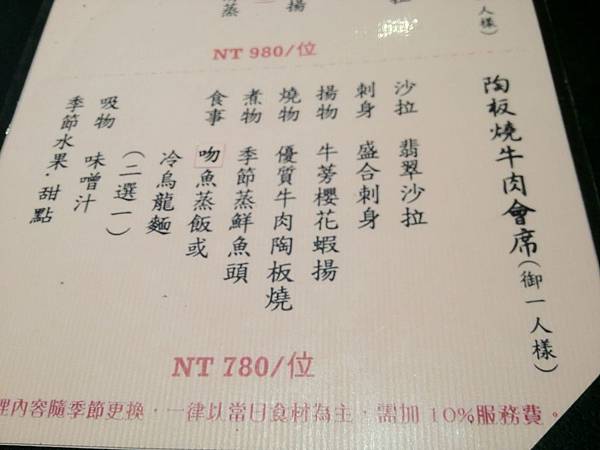 蒸
揚
人樣）
NT 980/位
陶板燒牛肉會席（御一人樣）
沙拉 翡翠沙拉
刺身 盛合刺身
揚物 牛蒡櫻花蝦揚
燒物 優質牛肉陶板燒
煮物 季節蒸鮮魚頭
食事 吻魚蒸飯或
冷烏龍麵
（二選一）
吸物 味噌汁
季節水果．甜點
NT 780/位
理內容隨季節更換，一律以當日食材為主，需加 10%服務費。